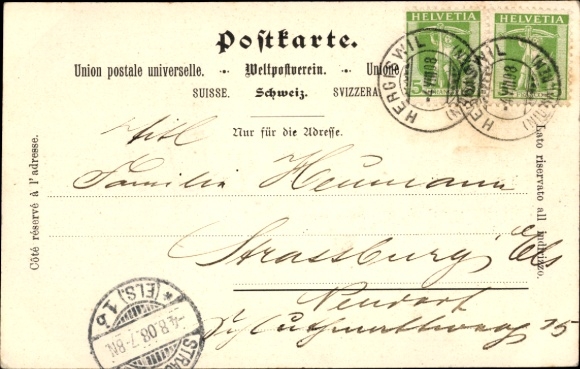 Postkarte.
Union postale universelle. · Weltpostverein. · Unione
SUISSE. Schweiz. SVIZZERA
Nur für die Adresse.
Côté réservé à l'adresse.
Lato riservato all indirizzo.
HELVETIA
HELVETIA
HERGISWIL
HERGISWIL
VIII 08
VIII 08
Titl
Familie Heumann
Strassburg, Els
Neudorf
75
STRAS
(ELS.) 1b
-4.8.08.7-8N.